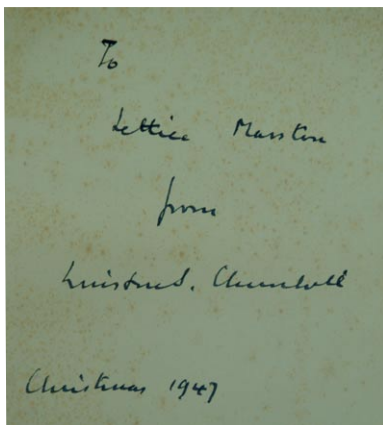 To
Lettice Marston
from
Winston S. Churchill
Christmas 1947